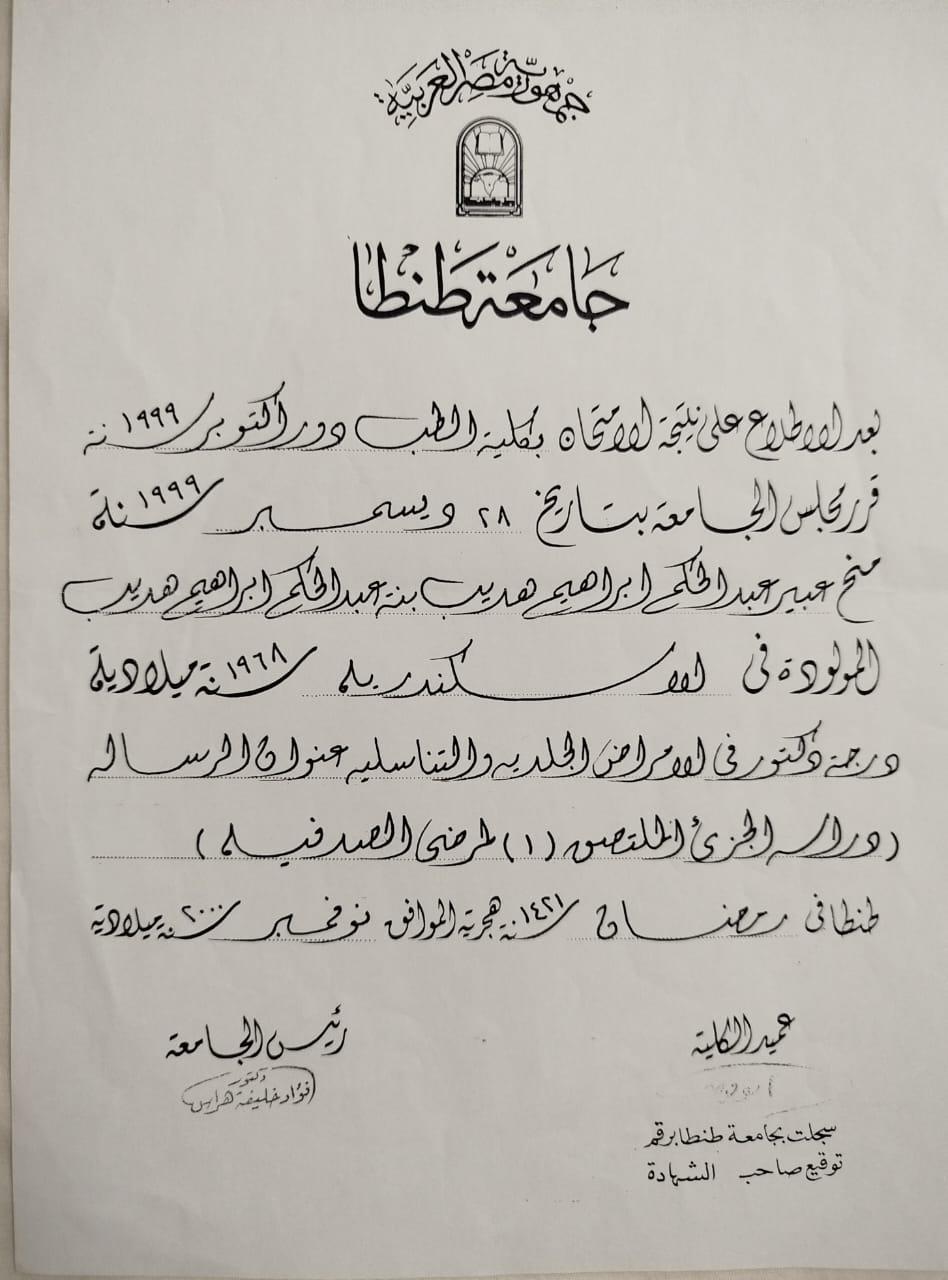 جمهورية مصر العربية
جامعة طنطا
بعد الاطلاع على نتيجة الامتحان بكلية الطب دور أكتوبر سنة ١٩٩٩
قرر مجلس الجامعة بتاريخ ٢٨ ديسمبر سنة ١٩٩٩
منح عبير عبد الحكم ابراهيم هديب بنة عبد الحكم ابراهيم هديب
المولودة فى الاسكندريه سنة ١٩٦٨ ميلادية
درجة دكتور فى الامراض الجلديه والتناسليه عنوان الرساله
(دراسه الجزئ الملتصق (١) لمرضى الصدفيه)
طنطا فى رمضان سنة ١٤٢١ هجرية الموافق نوفمبر سنة ٢٠٠٠ ميلادية
عميد الكلية
رئيس الجامعة
دكتور
فؤاد خليفة هراس
سجلت بجامعة طنطا برقم
توقيع صاحب الشهادة